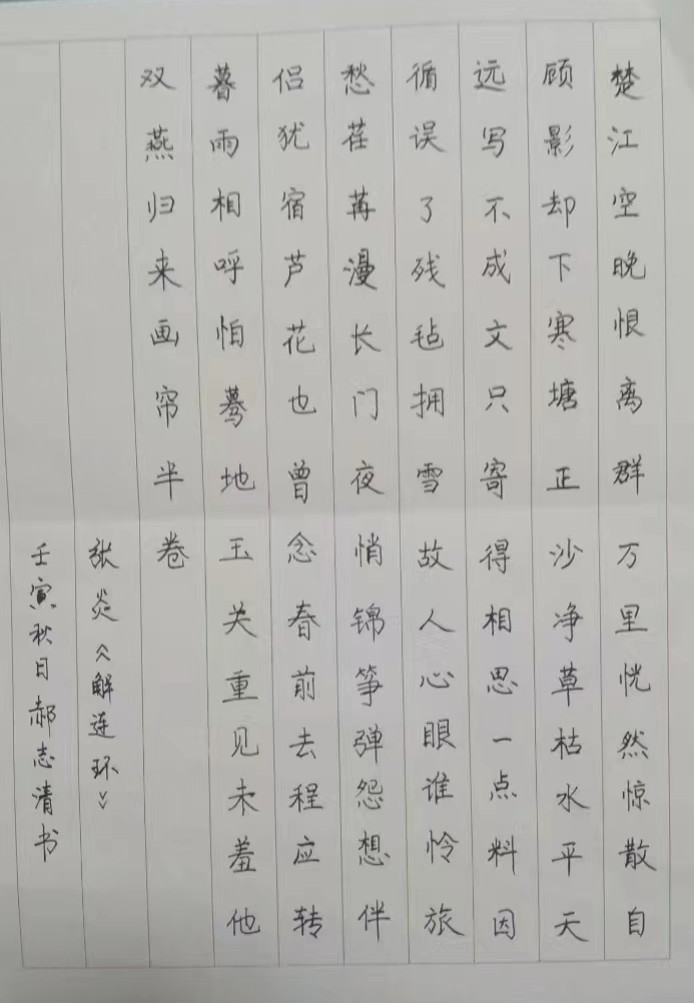 楚江空晚恨离群万里恍然惊散自
顾影却下寒塘正沙净草枯水平天
远写不成文只寄得相思一点料因
循误了残毡拥雪故人心眼谁怜旅
愁荏苒漫长门夜悄锦筝弹怨想伴
侣犹宿芦花也曾念春前去程应转
暮雨相呼怕蓦地玉关重见未羞他
双燕归来画帘半卷
张炎《解连环》
壬寅秋日郝志清书